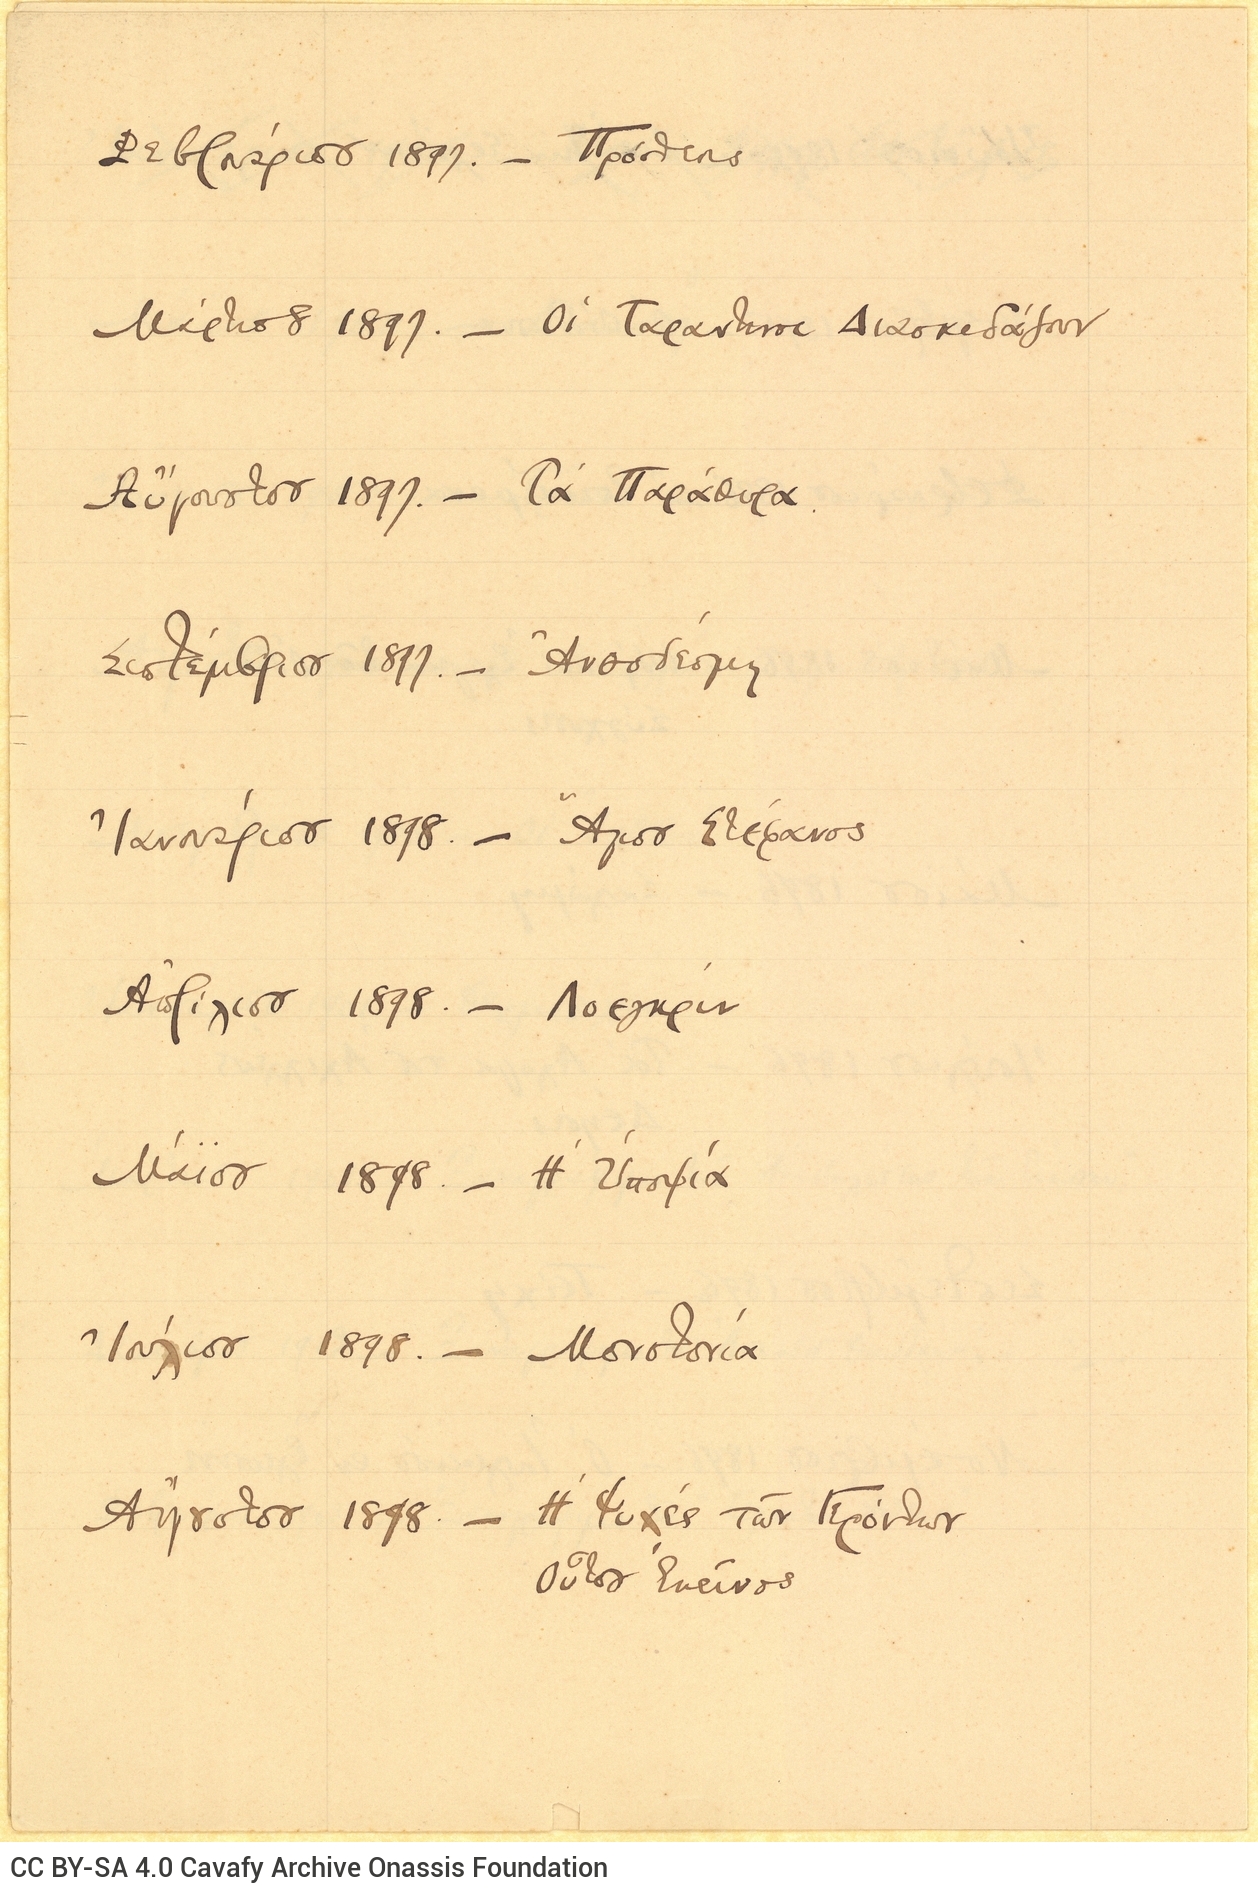 Φεβρουάριου 1897. — Πρόσθεσις
Μάρτιου 1897. — Οἱ Ταραντινοι Διασκεδάζουν
Αὔγουστου 1897. — Τά Παράθυρα.
Σεπτέμβριου 1897. —
Ἰανουάριου 1898. — Ἅγιου Στέφανος
Ἀπρίλιου 1898. — Λοεγκρίν
Μάϊου 1898. — Ἡ Ὑποψία
Ἰούλιου 1898. — Μονοτονία
Αὔγουστου 1898. — Ἡ Ψυχές τῶν Γερόντων
Οὗτου Ἐκεῖνος
CC BY-SA 4.0 Cavafy Archive Onassis Foundation